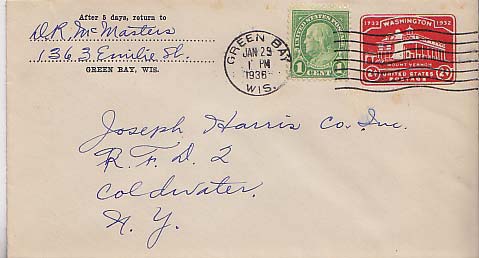 After 5 days, return to
D.R. McMasters
1363 Emilie St.
GREEN BAY, WIS.
GREEN BAY
JAN 29
1 PM
1936
WIS.
UNITED STATES POSTAGE
1 CENT 1
1732 WASHINGTON 1932
MOUNT VERNON
2½ UNITED STATES 2½
POSTAGE
Joseph Harris Co. Inc.
R.F.D. 2
Coldwater.
N.Y.